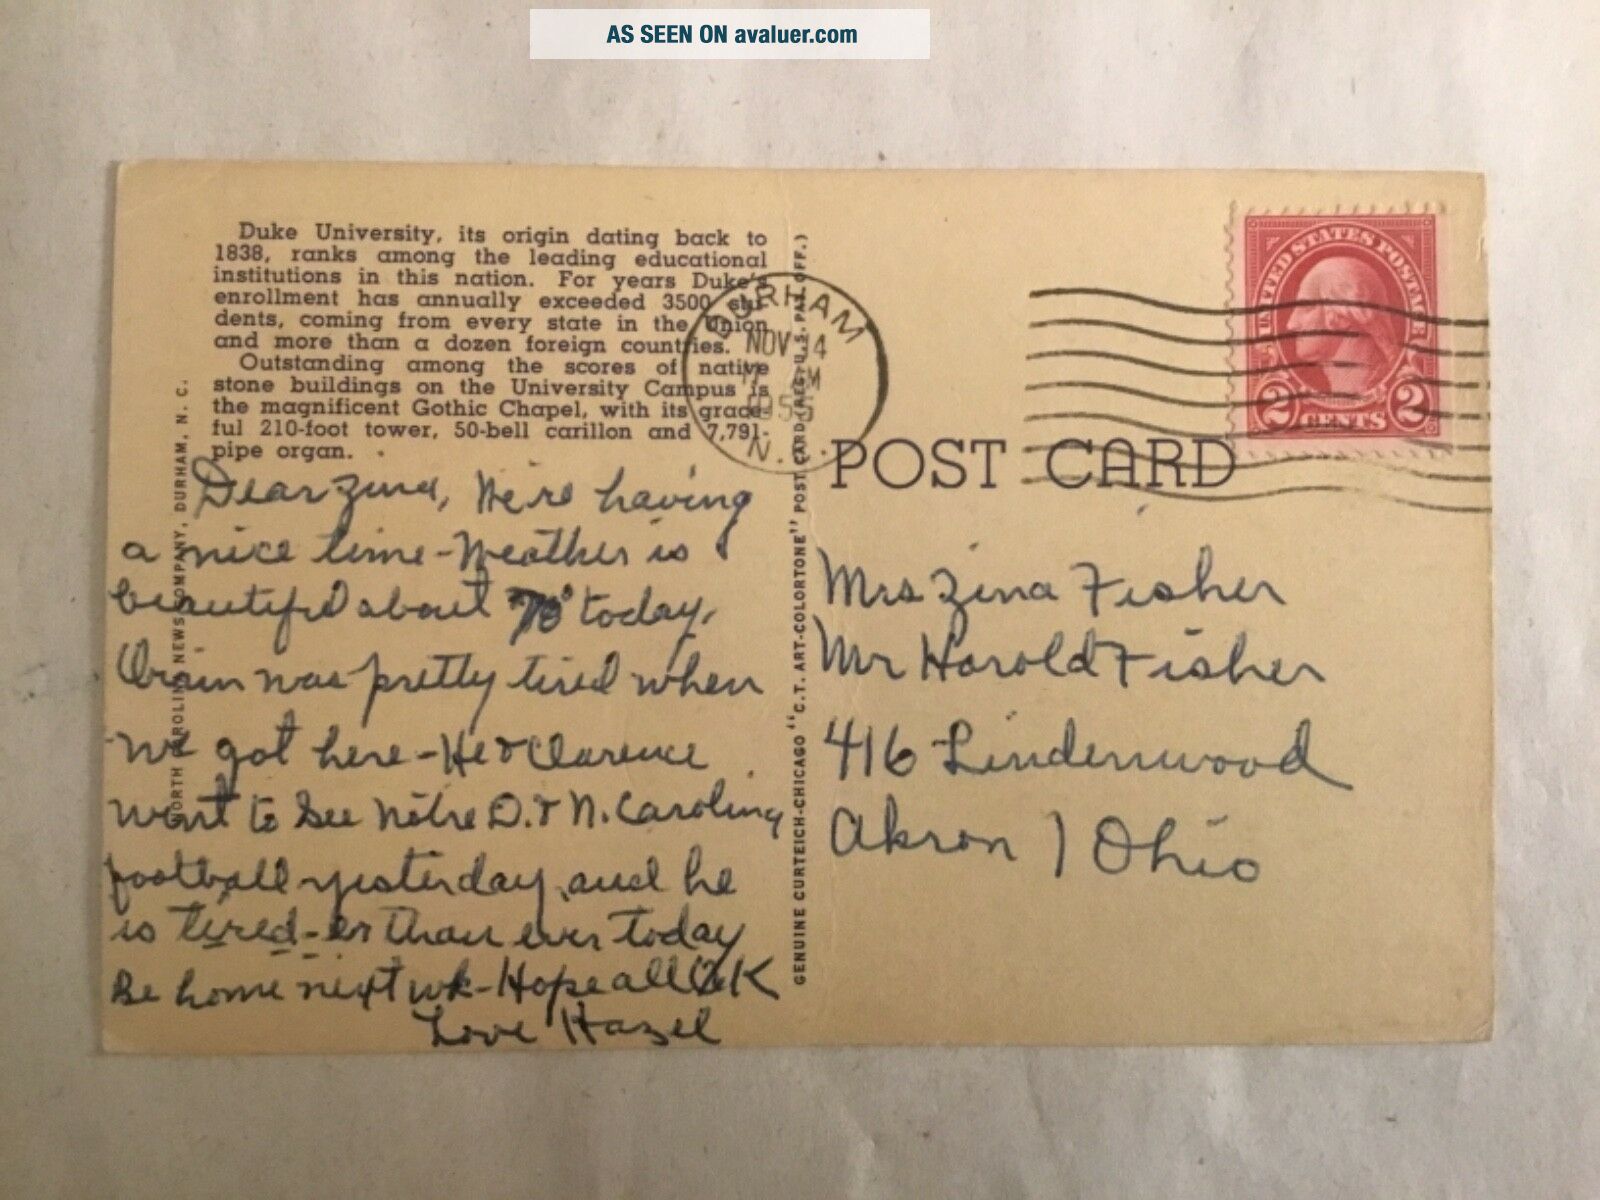 AS SEEN ON avaluer.com
Duke University, its origin dating back to
1838, ranks among the leading educational
institutions in this nation. For years Duke's
enrollment has annually exceeded 3500 stu-
dents, coming from every state in the Union
and more than a dozen foreign countries.
Outstanding among the scores of native
stone buildings on the University Campus is
the magnificent Gothic Chapel, with its grace-
ful 210-foot tower, 50-bell carillon and 7,791-
pipe organ.
Dear Zina, We're having
a nice time - Weather is
beautiful about 70° today.
was pretty tired when
we got here - He & Clarence
went to see Notre D. & N. Carolina
football yesterday, and he
is tired-er than ever today
Be home next wk - Hope all OK
Love Hazel
NORTH CAROLINA NEWS COMPANY, DURHAM, N. C.
GENUINE CURTEICH-CHICAGO "C.T. ART-COLORTONE" POST CARD (REG. U.S. PAT. OFF.)
DURHAM
NOV 14
1955
N.C.
POST CARD
UNITED STATES POSTAGE
2 CENTS 2
Mrs Zina Fisher
Mr Harold Fisher
416 Lindenwood
Akron 1 Ohio